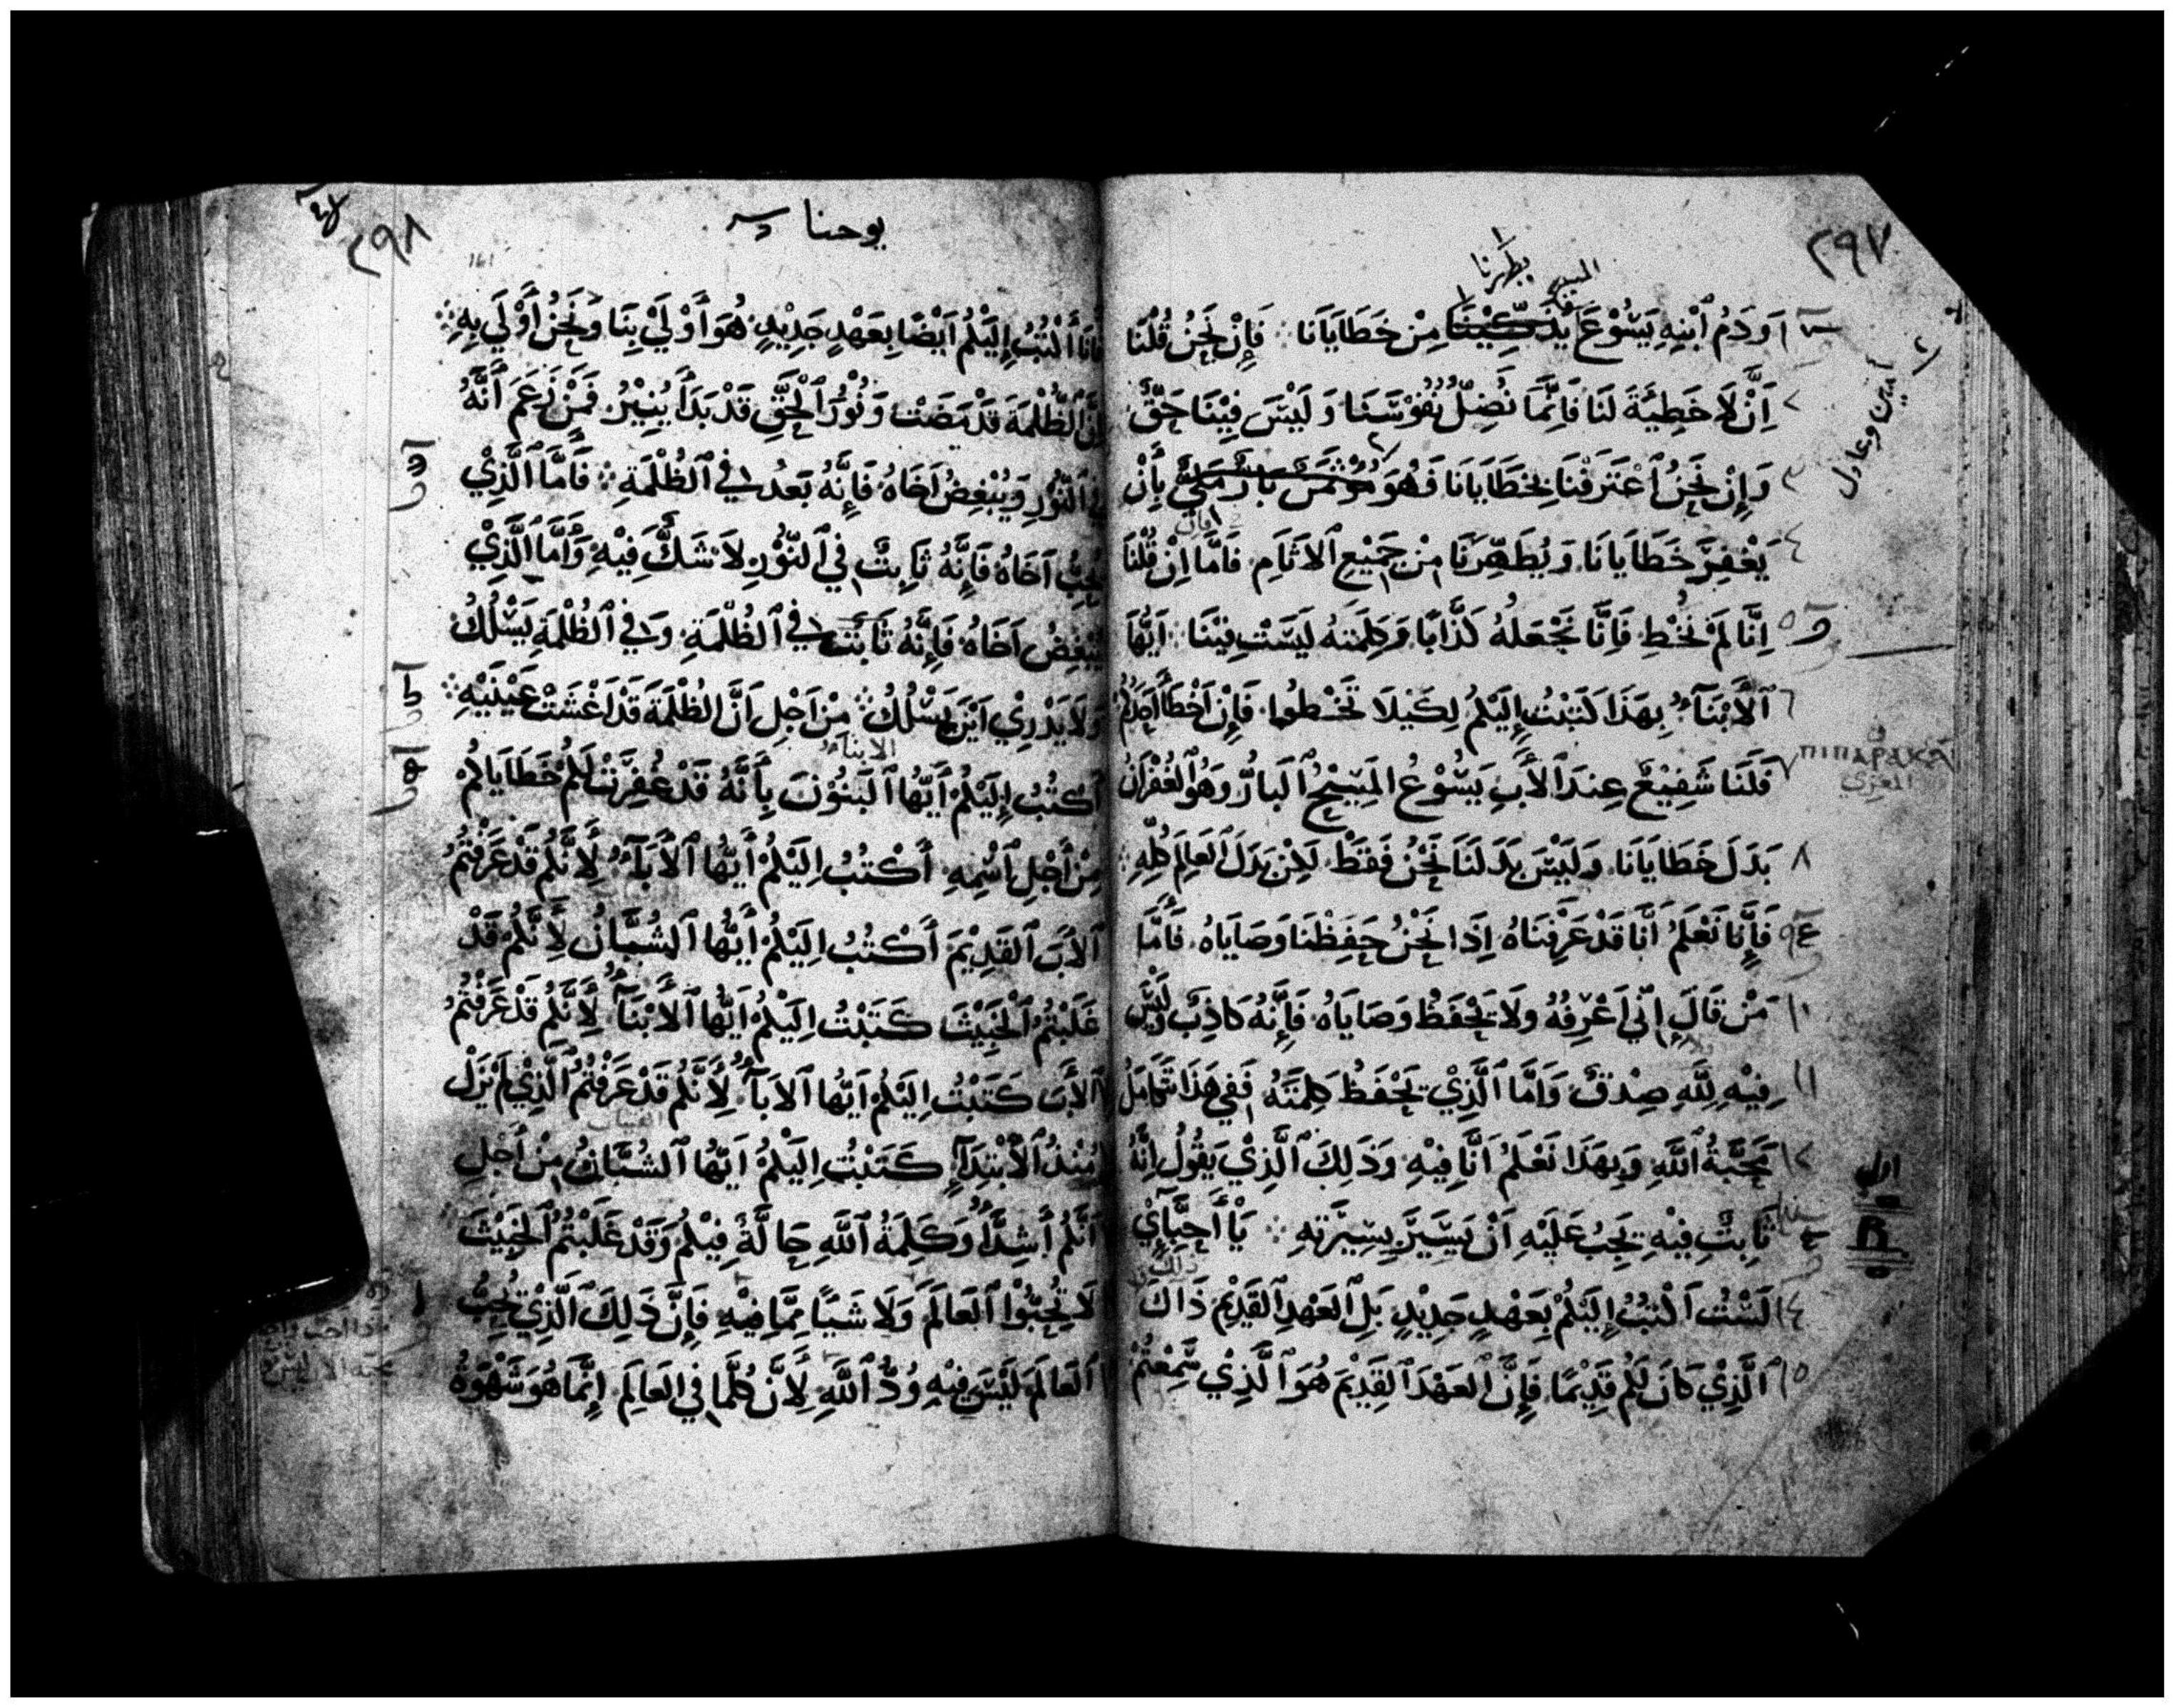 ٢٩٧
المسيح
يطهرنا
وَدَمُ ٱبْنِهِ يَسُوْعَ يُذَكِّيْنَا مِنْ خَطَايَانَا فَإِنْ نَحْنُ قُلْنَا
أمين وعادل
٢ اَنْ لَا خَطِيْئَةَ لَنَا فَاِنَّمَا نُضِلُّ نُفُوْسَنَا وَلَيْسَ فِيْنَا حَقٌّ
٣ وَإِنْ نَحْنُ ٱعْتَرَفْنَا بِخَطَايَانَا فَهُوَ بَارٌّ بِأَنْ
٤ يَغْفِرَ خَطَايَانَا وَيُطَهِّرَنَا مِنْ جَمِيْعِ ٱلاَثَامِ فَامَّا اِنْ قُلْنَا
٥ اِنَّا لَمْ نُخْطِ فَاِنَّا نَجْعَلُهُ كَذَّابًا وَكَلِمَتُهُ لَيْسَتْ فِيْنَا اَيُّهَا
٦ ٱلْأَبْنَآءُ بِهَذَا كَتَبْتُ إِلَيْكُمْ لِكَيْلَا تَخْطُوا فَإِنْ اَخْطَأَ اَحَدُكُمْ
٧ فَلَنَا شَفِيْعٌ عِنْدَ ٱلْأَبِ يَسُوْعُ المَسِيْحُ ٱلبَارُّ وَهُوَ ٱلغُفْرَانُ
ΠΙΠΑΡΑΚΛ
المعزي
٨ بَدَلَ خَطَايَانَا وَلَيْسَ بَدَلَنَا نَحْنُ فَقَطْ لَكِنْ بَدَلَ ٱلعَالَمِ كُلِّهِ
٩ فَإِنَّا نَعْلَمُ اَنَّا قَدْ عَرَفْنَاهُ اِذَا نَحْنُ حَفِظْنَا وَصَايَاهُ فَأَمَّا
١٠ مَنْ قَالَ إِنِّي اَعْرِفُهُ وَلَا يَحْفَظُ وَصَايَاهُ فَإِنَّهُ كَاذِبٌ لَيْسَ
١١ فِيْهِ لِلَّهِ صِدْقٌ وَاَمَّا ٱلَّذِيْ يَحْفَظُ كَلِمَتَهُ فَفِي هَذَا تَكَامَلُ
١٢ مَحَبَّةُ ٱللَّهِ وَبِهَذَا نَعْلَمُ اَنَّا فِيْهِ وَذَلِكَ ٱلَّذِيْ يَقُوْلُ اِنَّهُ
ثَابِتٌ فِيْهِ يَجِبُ عَلَيْهِ اَنْ يَسِيْرَ بِسِيْرَتِهِ يَاْ أَحِبَّآئِيْ
١٤ لَسْتُ اَكْتُبُ إِلَيْكُمْ بِعَهْدٍ جَدِيْدٍ بَلِ ٱلعَهْدِ ٱلقَدِيْمِ ذَاكَ
١٥ ٱلَّذِيْ كَانَ لَكُمْ قَدِيْمًا فَإِنَّ ٱلعَهْدَ ٱلقَدِيْمَ هُوَ ٱلَّذِيْ سَمِعْتُمْ
٢٩٨
يوحنا
161
فَانَا أَكْتُبُ إِلَيْكُمْ اَيْضًا بِعَهْدٍ جَدِيْدٍ هُوَ أَوْلَىْ بِنَا وَنَحْنُ أَوْلَى بِهِ
لِأَنَّ ٱلظُّلْمَةَ قَدْ مَضَتْ وَنُوْرُ ٱلْحَقِّ قَدْ بَدَأَ يُنِيْرُ فَمَنْ زَعَمَ أَنَّهُ
فِي ٱلنُّوْرِ وَيُبْغِضُ اَخَاهُ فَإِنَّهُ بَعْدُ فِي ٱلظُّلْمَةِ فَأَمَّا ٱلَّذِيْ
يُحِبُّ اَخَاهُ فَإِنَّهُ ثَابِتٌ فِي ٱلنُّوْرِ لَا شَكَّ فِيْهِ وَأَمَّا الَّذِيْ
يُبْغِضُ اَخَاهُ فَإِنَّهُ ثَابِتٌ فِي ٱلظُّلْمَةِ وَفِي ٱلظُّلْمَةِ يَسْلُكُ
وَلَا يَدْرِي اَيْنَ يَسْلُكُ مِنْ اَجْلِ اَنَّ الظُلْمَةَ قَدْ اَغْشَتْ عَيْنَيْهِ
الابناء
أَكْتُبُ إِلَيْكُمْ أَيُّهَا ٱلبَنُوْنَ بِأَنَّهُ قَدْ غُفِرَتْ لَكُمْ خَطَايَاكُمْ
مِنْ أَجْلِ ٱسْمِهِ أَكْتُبُ اِلَيْكُمْ أَيُّهَا ٱلْأَبَآءُ لِأَنَّكُمْ قَدْ عَرَفْتُمُ
ٱلاَبَ ٱلقَدِيْمَ أَكْتُبُ اِلَيْكُمْ أَيُّهَا ٱلشُبَّانُ لِأَنَّكُمْ قَدْ
غَلَبْتُمْ ٱلْخَبِيْثَ كَتَبْتُ اِلَيْكُمْ اَيُّهَا ٱلْأَبْنَآءُ لِأَنَّكُمْ قَدْ عَرَفْتُمُ
ٱلْأَبَ كَتَبْتُ اِلَيْكُمْ اَيُّهَا ٱلاَبَآءُ لِأَنَّكُمْ قَدْ عَرَفْتُمُ ٱلَّذِيْ لَمْ يَزَلْ
مُنْذُ ٱلْأَبْتِدَآءِ كَتَبْتُ اِلَيْكُمْ اَيُّهَا ٱلشُبَّانُ مِنْ أَجْلِ
اَنَّكُمْ أَشِدَّآءُ وَكَلِمَةُ ٱللَّهِ حَالَّةٌ فِيْكُمْ وَقَدْ غَلَبْتُمُ ٱلخَبِيْثَ
لَا تُحِبُّوْا ٱلعَالَمَ وَلَا شَيًا مِمَّا فِيْهِ فَإِنَّ ذَلِكَ ٱلَّذِيْ يُحِبُّ
ٱلعَالَمَ لَيْسَ فِيْهِ وُدُّ ٱللَّهِ لِأَنَّ كُلَّمَا فِي العَالَمِ إِنَّمَا هُوَ شَهْوَةُ